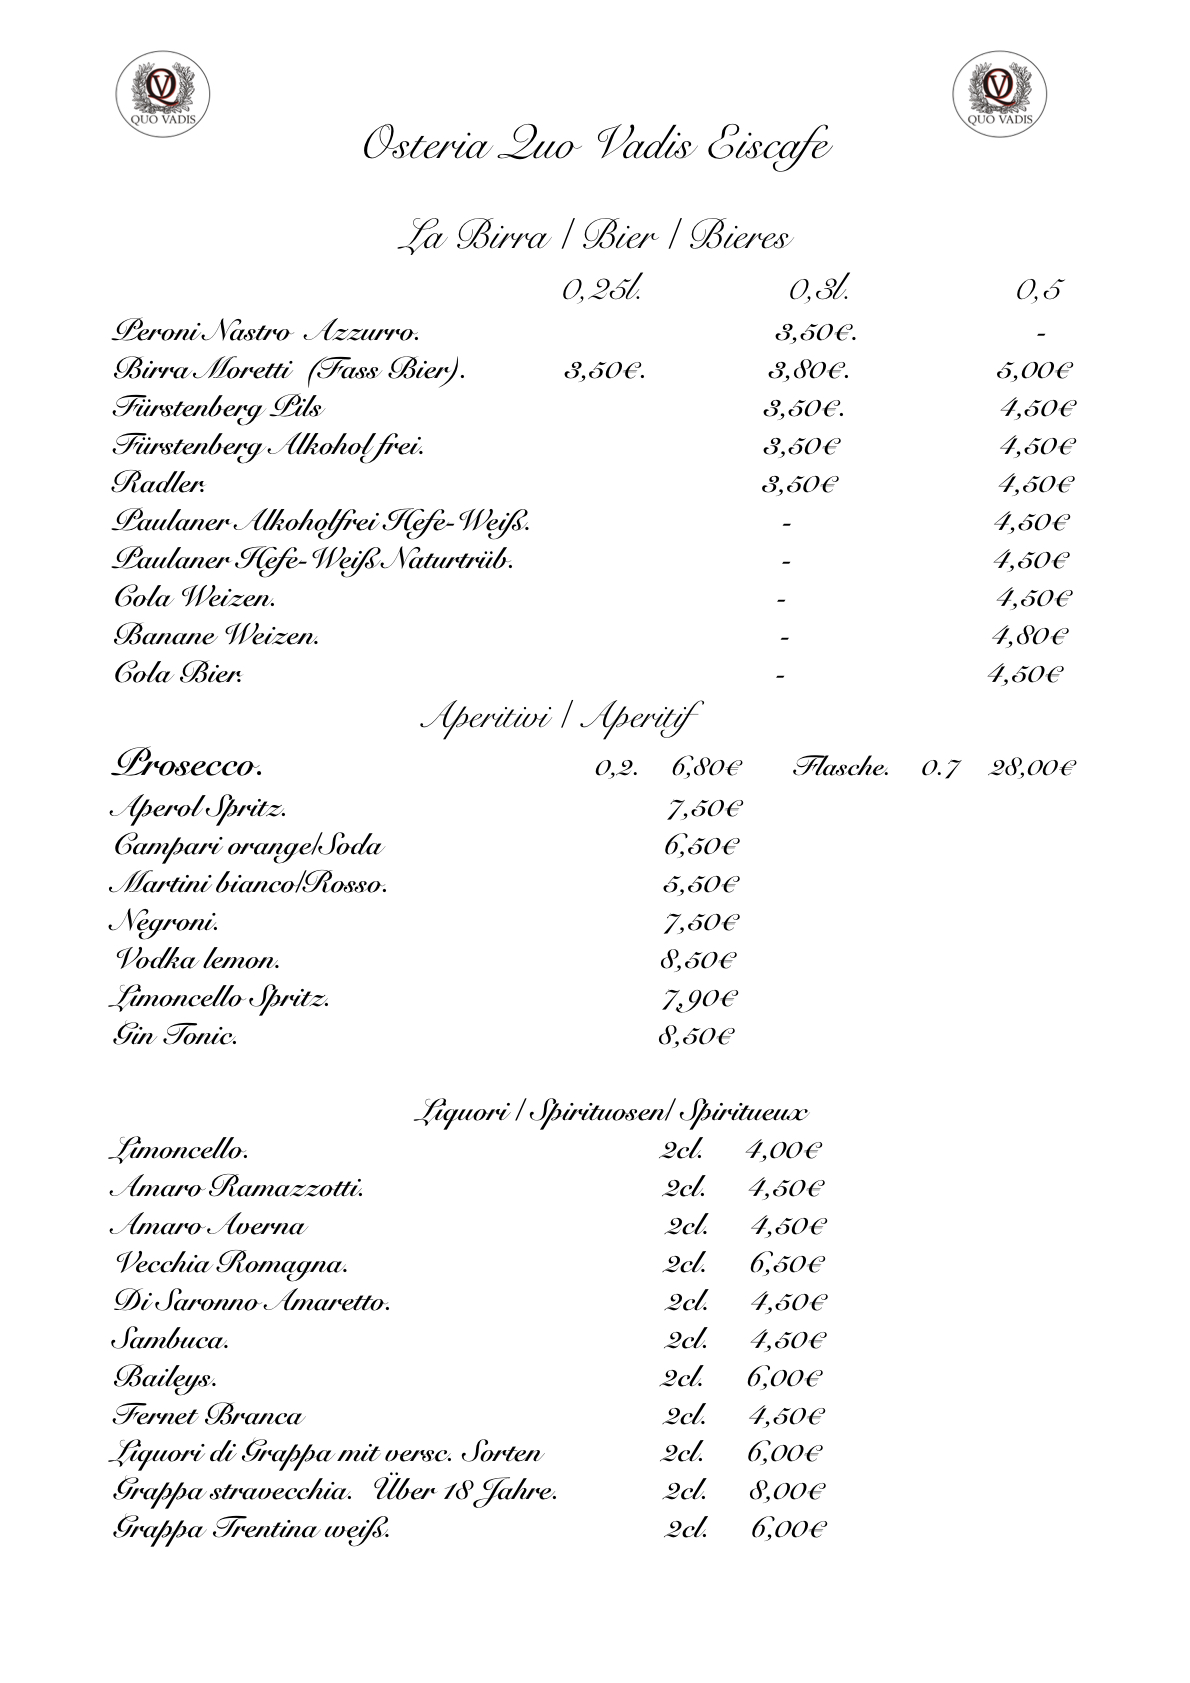 QUO VADIS
QUO VADIS
Osteria Quo Vadis Eiscafe
La Birra / Bier / Bieres
0,25l. 0,3l. 0,5
Peroni Nastro Azzurro. 3,50€. -
Birra Moretti (Fass Bier). 3,50€. 3,80€. 5,00€
Fürstenberg Pils 3,50€. 4,50€
Fürstenberg Alkohol frei. 3,50€ 4,50€
Radler. 3,50€ 4,50€
Paulaner Alkoholfrei Hefe-Weiß. - 4,50€
Paulaner Hefe-Weiß Naturtrüb. - 4,50€
Cola Weizen. - 4,50€
Banane Weizen. - 4,80€
Cola Bier. - 4,50€
Aperitivi / Aperitif
Prosecco. 0,2. 6,80€ Flasche. 0.7 28,00€
Aperol Spritz. 7,50€
Campari orange/Soda 6,50€
Martini bianco/Rosso. 5,50€
Negroni. 7,50€
Vodka lemon. 8,50€
Limoncello Spritz. 7,90€
Gin Tonic. 8,50€
Liquori / Spirituosen/ Spiritueux
Limoncello. 2cl. 4,00€
Amaro Ramazzotti. 2cl. 4,50€
Amaro Averna 2cl. 4,50€
Vecchia Romagna. 2cl. 6,50€
Di Saronno Amaretto. 2cl. 4,50€
Sambuca. 2cl. 4,50€
Baileys. 2cl. 6,00€
Fernet Branca 2cl. 4,50€
Liquori di Grappa mit versc. Sorten 2cl. 6,00€
Grappa stravecchia. Über 18 Jahre. 2cl. 8,00€
Grappa Trentina weiß. 2cl. 6,00€